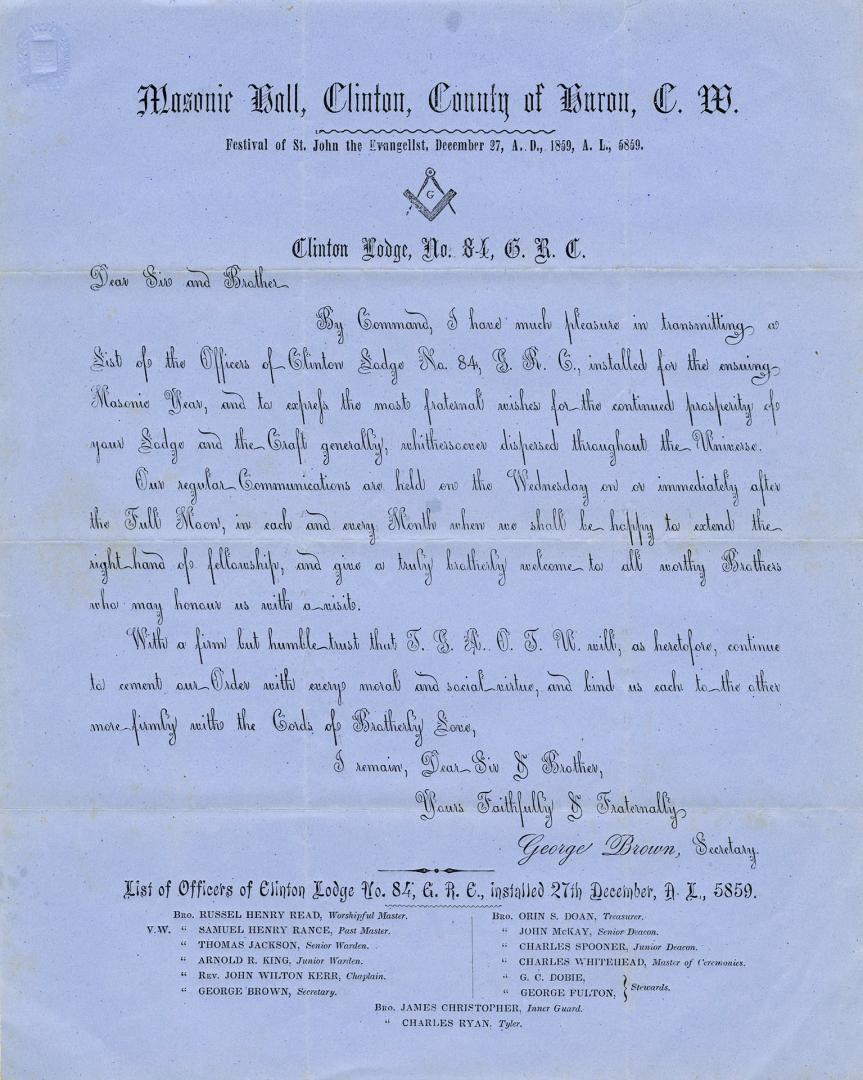 Masonic Hall, Clinton, County of Huron, C. W.
Festival of St. John the Evangelist, December 27, A. D., 1859, A. L., 5859.
G
Clinton Lodge, No. 84, G. R. C.
Dear Sir and Brother
By Command, I have much pleasure in transmitting a
List of the Officers of Clinton Lodge No. 84, G. R. C., installed for the ensuing
Masonic Year, and to expreſs the most fraternal wishes for the continued prosperity of
your Lodge and the Craft generally, whithersoever dispersed throughout the Universe.
Our regular Communications are held on the Wednesday on or immediately after
the Full Moon, in each and every Month when we shall be happy to extend the
right hand of fellowship, and give a truly brotherly welcome to all worthy Brothers
who may honour us with a visit.
With a firm but humble trust that T. G. A. O. T. U. will, as heretofore, continue
to cement our Order with every moral and social virtue, and bind us each to the other
more firmly with the Cords of Brotherly Love,
I remain, Dear Sir & Brother,
Yours Faithfully & Fraternally
George Brown, Secretary.
List of Officers of Clinton Lodge No. 84, G. R. C., installed 27th December, A. L., 5859.
Bro. RUSSEL HENRY READ, Worshipful Master.
V.W. “ SAMUEL HENRY RANCE, Past Master.
“ THOMAS JACKSON, Senior Warden.
“ ARNOLD R. KING, Junior Warden.
“ Rev. JOHN WILTON KERR, Chaplain.
“ GEORGE BROWN, Secretary.
Bro. ORIN S. DOAN, Treasurer.
“ JOHN McKAY, Senior Deacon.
“ CHARLES SPOONER, Junior Deacon.
“ CHARLES WHITEHEAD, Master of Ceremonies.
“ G. C. DOBIE,
“ GEORGE FULTON, } Stewards.
Bro. JAMES CHRISTOPHER, Inner Guard.
“ CHARLES RYAN, Tyler.